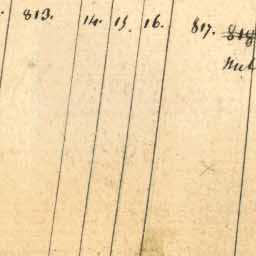 813. 14. 15. 16. 817. 818